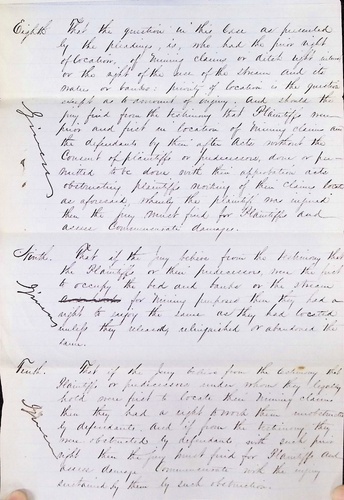 Eighth. That the question in this Case as presented
by the pleadings, is, who had the prior right
of location, of mining claims or ditch right
or the right of the use of the stream and its
waters or banks: priority of location is the question
except as to amount of injury. And should the
jury find from the testimony that Plaintiffs were
prior and first in location of mining claims and
the defendants by their after Acts without the
Consent of plaintiffs or predecessors, done or per-
mitted to be done with their approbation acts
obstructing plaintiffs working of their claims located
as aforesaid, whereby the plaintiffs was injured
then the jury must find for Plaintiffs and
assess Commensurate damages.
Given
Ninth. That if the jury believe from the testimony that
the Plaintiffs or their predecessors, were the first
to occupy the bed and banks of the stream
for mining purposes then they had a
right to enjoy the same as they had located
unless they relinquished or abandoned the
same.
Given
Tenth. That if the jury believe from the testimony that
Plaintiffs or predecessors under whom they
hold were first to locate their mining claims
then they had a right to work them unobstructed
by defendants, and if from the testimony they
were obstructed by defendants with such prior
right then the jury must find for Plaintiffs and
assess damages Commensurate with the injury
sustained by them by such obstruction.
Given